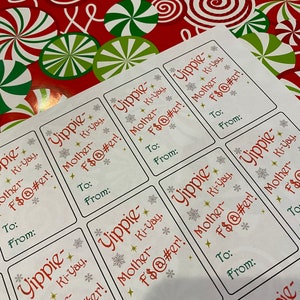 Yippie-
Ki-Yay,
Mother-
F$@#er!
To:
From:
Yippie-
Ki-Yay,
Mother-
F$@#er!
To:
From:
Yippie-
Ki-Yay,
Mother-
F$@#er!
To:
From:
Yippie-
Ki-Yay,
Mother-
F$@#er!
To:
From:
Yippie-
Ki-Yay,
Mother-
F$@#er!
Yippie-
Ki-Yay,
Mother-
F$@#er!
To:
Yippie-
Ki-Yay,
Mother-
F$@#er!
To:
From:
Yippie-
Ki-Yay,
Mother-
F$@#er!
To:
From: